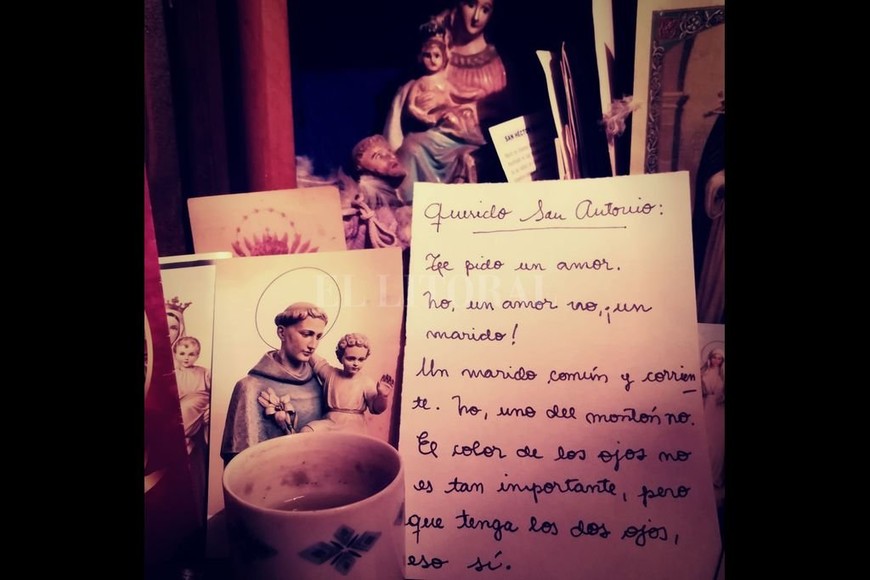 SAN HÉCTOR
Querido San Antonio:
Te pido un amor.
No, un amor no, ¡un
marido!
Un marido común y corrien-
te. No, uno del montón no.
El color de los ojos no
es tan importante, pero
que tenga los dos ojos,
eso sí.
EL LITORAL